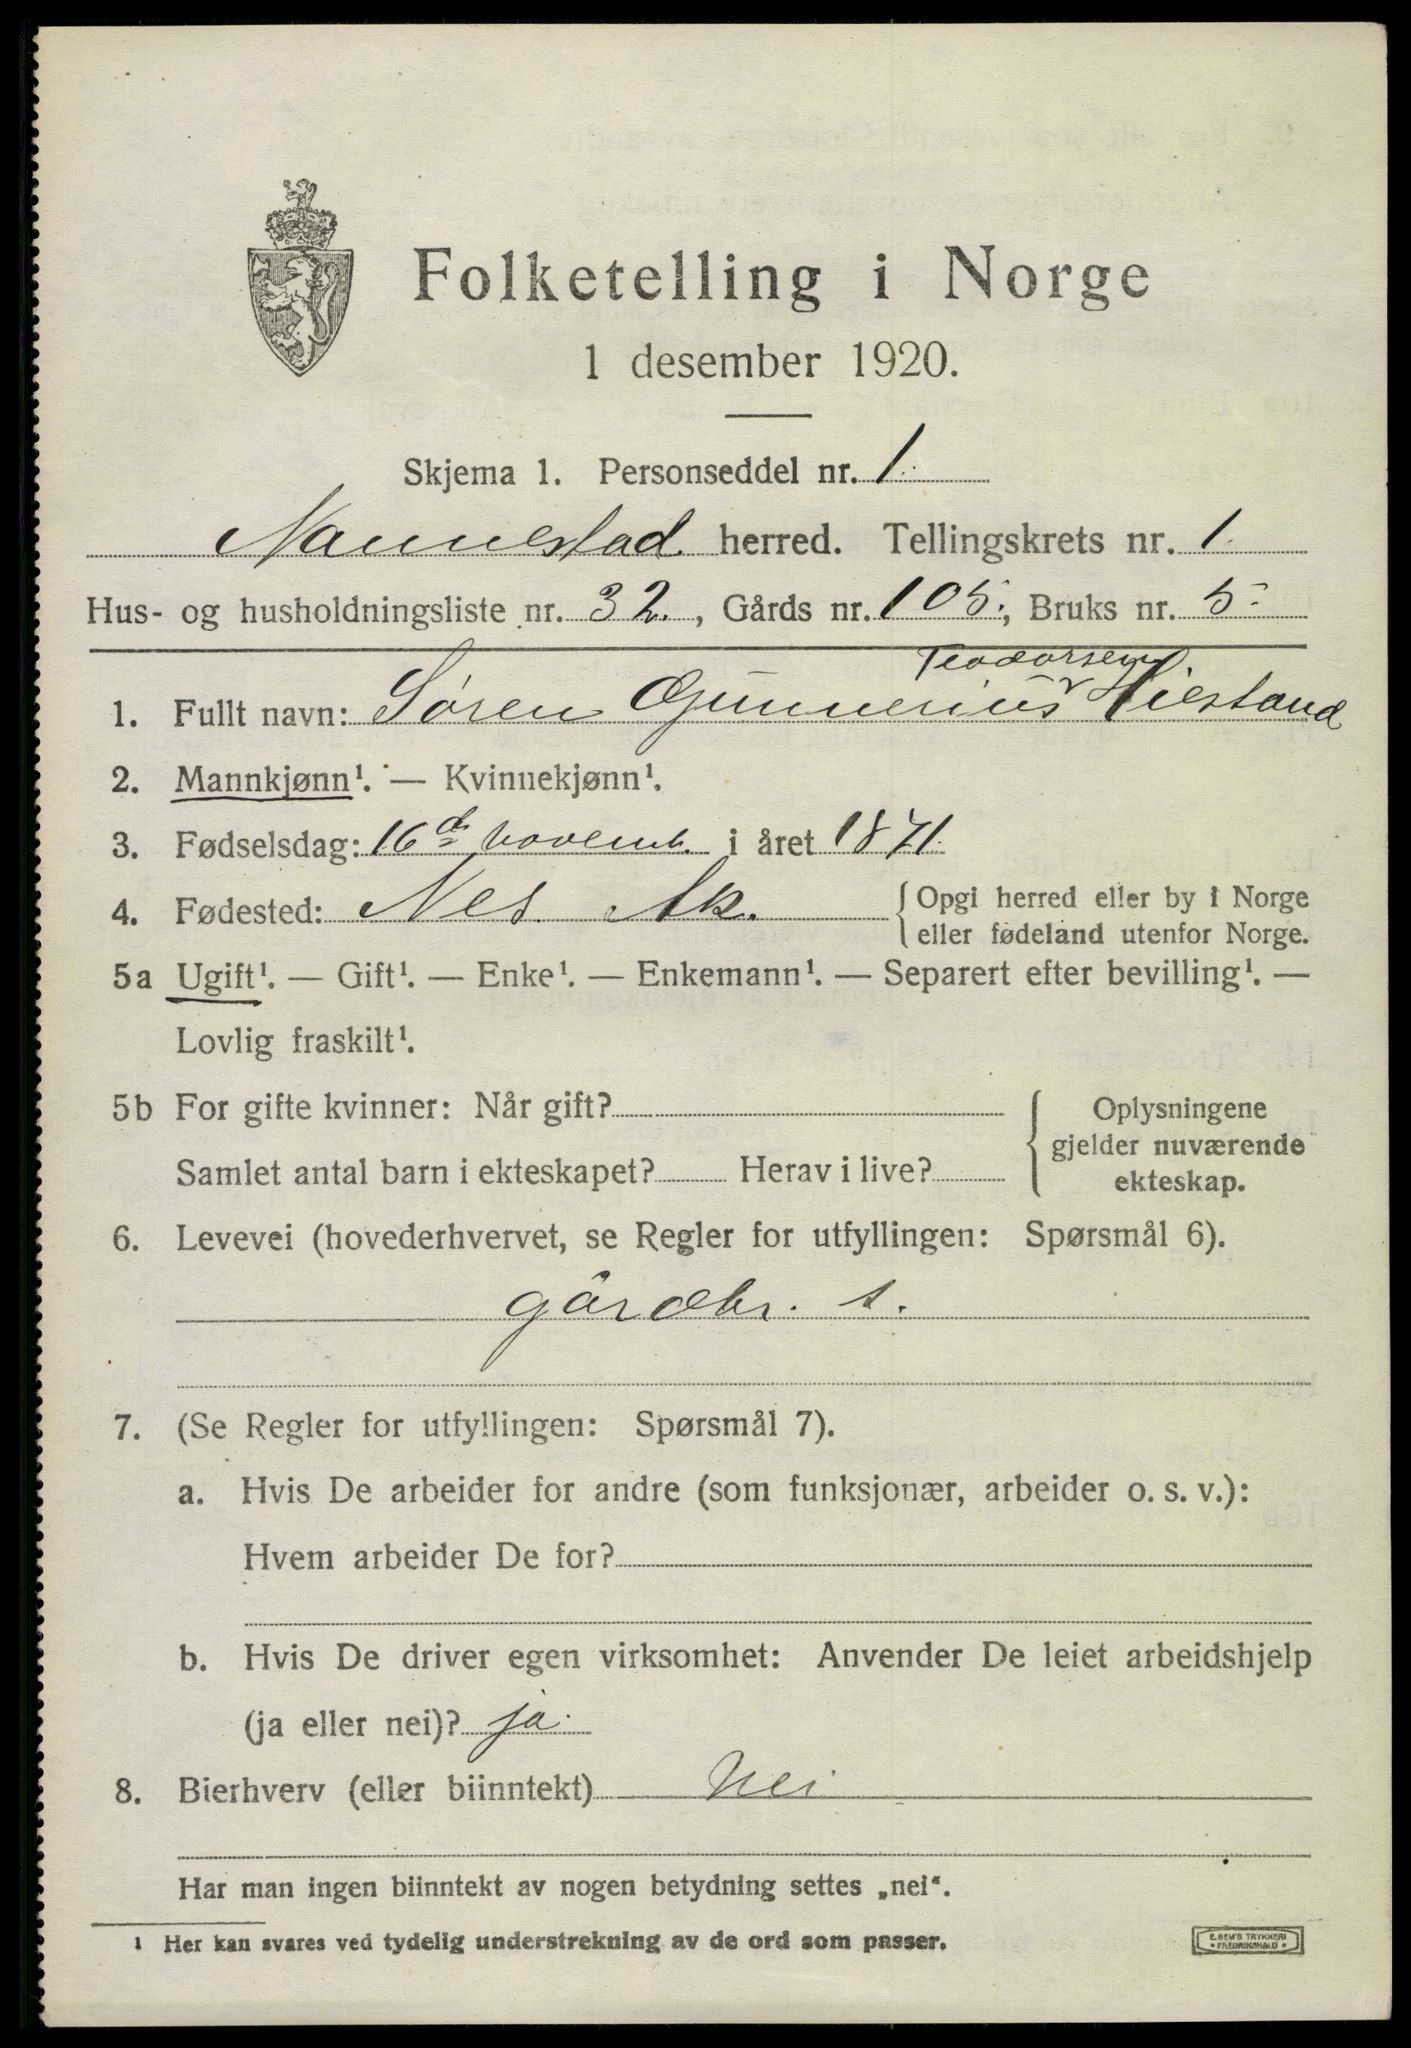 Folketelling i Norge
1 desember 1920.
Skjema 1. Personseddel nr. 1.
Nannestad herred. Tellingskrets nr. 1.
Hus- og husholdningsliste nr. 32., Gårds nr. 105., Bruks nr. 5.
Teodorsen
1. Fullt navn: Søren Gunnerius Hiestand
2. Mannkjønn¹. — Kvinnekjønn¹.
3. Fødselsdag: 16de novemb. i året 1871.
4. Fødested: Nes Ak. {Opgi herred eller by i Norge
eller fødeland utenfor Norge.
5a Ugift¹. — Gift¹. — Enke¹. — Enkemann¹. — Separert efter bevilling¹. —
Lovlig fraskilt¹.
5b For gifte kvinner: Når gift?
Samlet antal barn i ekteskapet? Herav i live?
Oplysningene
gjelder nuværende
ekteskap.
6. Levevei (hovederhvervet, se Regler for utfyllingen: Spørsmål 6).
gårdbr. s.
7. (Se Regler for utfyllingen: Spørsmål 7).
a. Hvis De arbeider for andre (som funksjonær, arbeider o. s. v.):
Hvem arbeider De for?
b. Hvis De driver egen virksomhet: Anvender De leiet arbeidshjelp
(ja eller nei)? ja.
8. Bierhverv (eller biinntekt) Nei
Har man ingen biinntekt av nogen betydning settes „nei".
1 Her kan svares ved tydelig understrekning av de ord som passer.
E. SEM'S TRYKKERI
• FREDRIKSHALD •